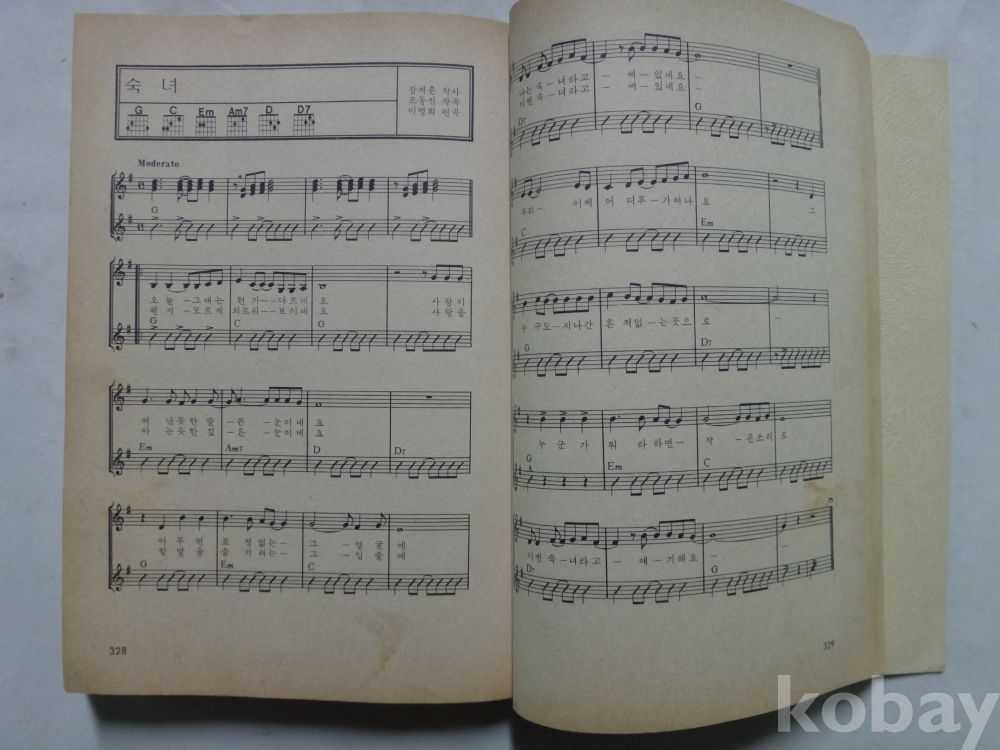 숙 녀
장제훈 작사
조동진 작곡
이명희 편곡
G C Em Am7 D D7
Moderato
G
오 늘-그대는 현 가--다르네 요 사랑이
웬 지-모르게 외로워--보이네 요 사랑을
G C G
떠 난듯한 슬-픈 -눈이네 요
아 는듯한 깊-은 -눈이네 요
Em Am7 D D7
아 무 런 표 정없는- 그- -얼굴에
할 말 을 숨 기려는- 그- -입술에
G Em C
328
나는 숙-녀라고 - 써-있네요 -
이젠 숙-녀라고 - 써-있네요 -
D7 G
우리- 이제 어 디론-가떠나 요 그
C Em
누 구도-지나간 흔 적없-는곳으 로 -
G D7
누 군 가 뭐 라 하면- 작 -은소리로
G Em C
A
이젠 숙-녀라고 - 얘-기해요 - -
D7 G
329
kobay